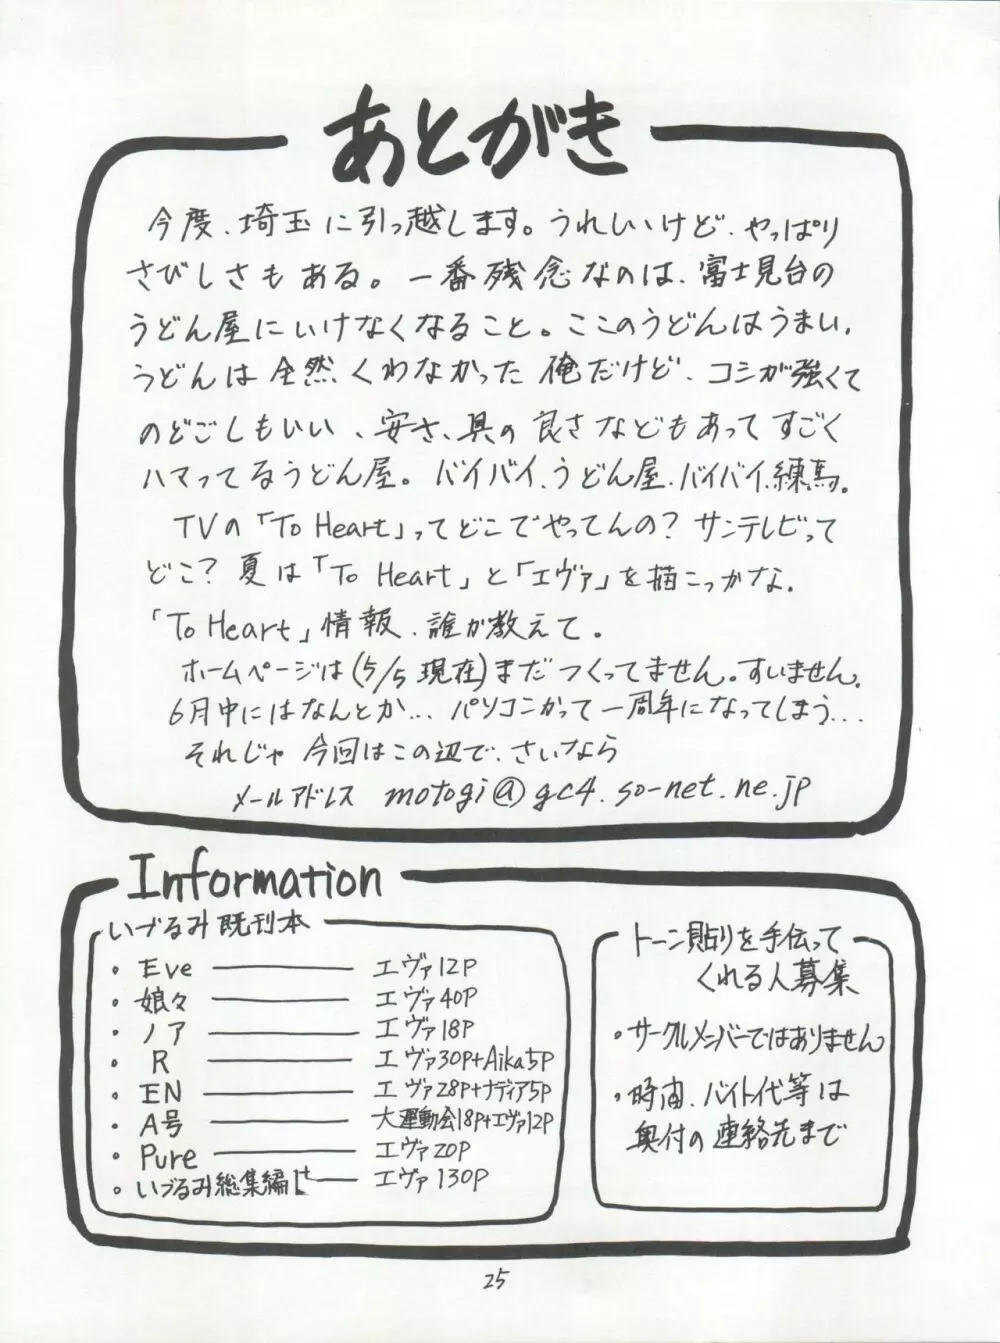 あとがき
今度、埼玉に引っ越します。うれしいけど、やっぱり
さびしさもある。一番残念なのは、富士見台の
うどん屋にいけなくなること。ここのうどんはうまい。
うどんは全然くわなかった俺だけど、コシが強くて
のどごしもいい、安さ、具の良さなどもあってすごく
ハマってるうどん屋。バイバイ、うどん屋、バイバイ、練馬。
TVの「To Heart」ってどこでやってんの?サンテレビって
どこ?夏は「To Heart」と「エヴァ」を描こっかな。
「To Heart」情報、誰か教えて。
ホームページは(5/5現在)まだつくってません。すいません。
6月中にはなんとか... パソコンかって一周年になってしまう...
それじゃ今回はこの辺で、さいなら
メールアドレス motogi@gc4.so-net.ne.jp
Information
いづるみ既刊本
・Eve ― エヴァ12P
・娘々 ― エヴァ40P
・ノア ― エヴァ18P
・R ― エヴァ30P+Aika5P
・EN ― エヴァ28P+ナディア5P
・A号 ― 大運動会18P+エヴァ12P
・Pure ― エヴァ20P
・いづるみ総集編 ― エヴァ130P
トーン貼りを手伝って
くれる人募集
・サークルメンバーではありません
・時間、バイト代等は
奥付の連絡先まで
25